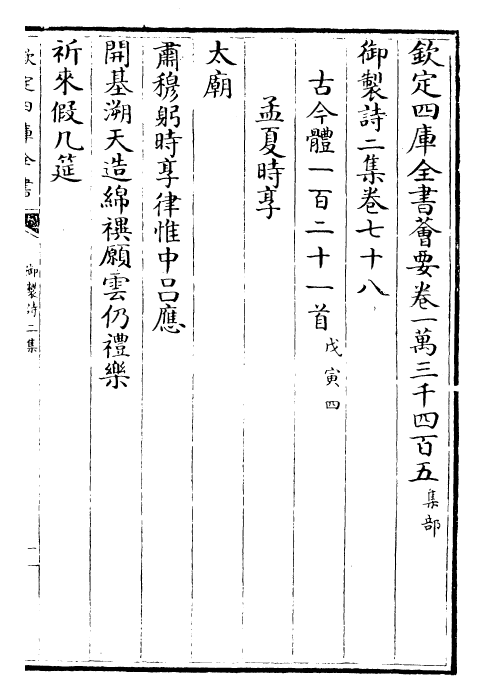 欽定四庫全書薈要卷一萬三千四百五集部
御製詩二集卷七十八
古今體一百二十一首戊寅四
孟夏時享
太廟
肅穆躬時享律惟中呂應
開基溯天造綿禩願雲仍禮樂
祈來假几筵
欽定四庫全書
御製詩二集
一